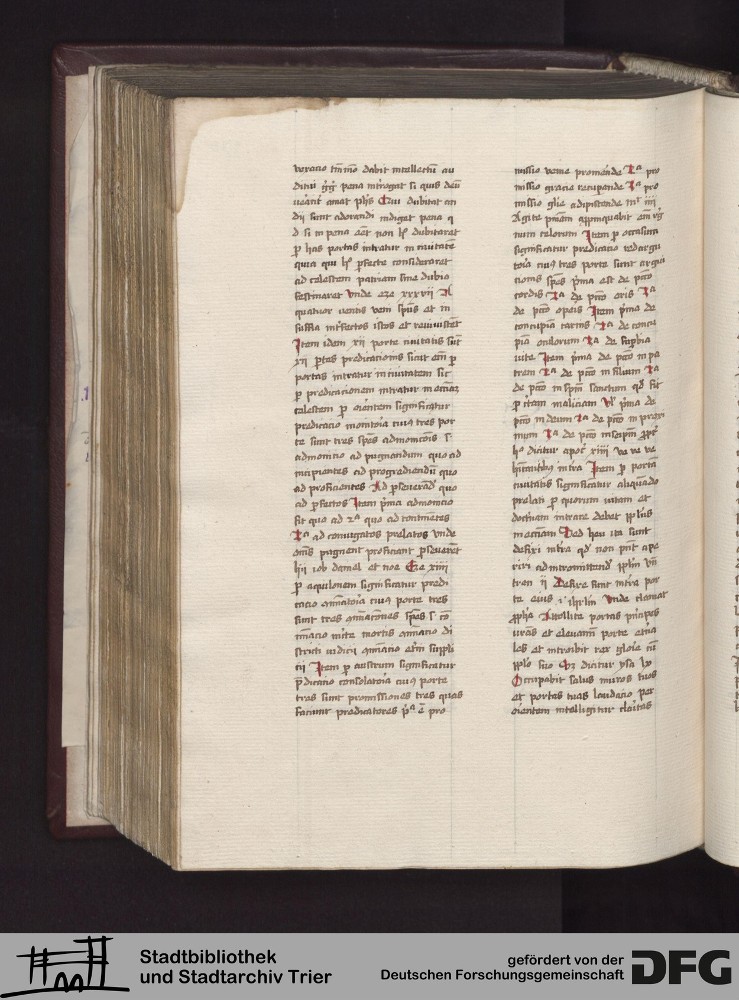 vexacio dabit intellectū au
ditui pena si quis
amat Cui dubitat an
dii sunt adorandi indiget pena q
d si in pena nō dubitaret
p has portas intratur in ciuitatē
quia qui pfecte consideraret
ad celestem patriam sine dubio
festinaret vnde eze xxxvii A
quatuor ventis veni spūs et in
suffla īterfectos istos et reuiuiscēt
Item idem xii porte ciuitatis sūt
xii ptes predicationis sicut em̄ p
portas intratur in ciuitatem sic
p predicacionem intratur in
celestem p orientem significatur
predicacio monitoria cuius tres por
te sunt tres spēs admonicōis s
admonicio ad pugnandum quo ad
incipientes ad progrediendū quo
ad proficientes Ad pseuerād quo
ad pfectos Item pma admonicio
fit quo ad 2ª quo ad continētes
3ª ad coniugatos prelatos vnde
pugnent proficiant pseuerēt
hii iob daniel et noe Eze xiiii
p aquilonem significatur predi
cacio cuius porte tres
sunt tres spēs s cō
minacio mortis di
stricti iudicii etni suppli
cii Item p austrum significatur
pdicatio consolatoria cuius porte
tres sunt promissiones tres quas
faciunt predicatores pª ē pro
missio venie 2ª pro
missio gracie recuperande 3ª pro
missio glie adipiscende mt iiii
Agite pniam appinquabit em̄ reg
num celorum Item p occasum
significatur predicatio redargu
toria cuius tres porte sunt
spēs pma est de pccō
cordis 2ª de pccō oris 3ª
de pccō operis Item pma de
concupia carnis 2ª de concu
pia oculorum 3ª de supbia
uite Item pma de pccō in pa
trem 2ª de pccō in filium 3ª
de pccō in spm sanctum qd fit
p certam maliciam Vel pma de
pccō in deum 2ª de pccō in proxi
mum 3ª de pccō in seipm ppt
hoc dicitur apoc xiiii ve ve ve
intra Item p portā
ciuitatis significatur aliquādo
prelati p quorum uitam et
doctnam intrare debet pplus
in Sed heu ita sunt
defixi in tra qd non pnt ape
riri ad intromittend pplm
tren ii Defixe sunt in tra por
te eius Vnde clamat
ppha Attollite portas pncipes
vras et eleuamī porte etna
les et introibit rex glorie cū
pplo suo Et dicitur ysa lx
Occupabit salus muros tuos
et portas tuas laudacio per
orientem intelligitur claritas
Stadtbibliothek
und Stadtarchiv Trier
gefördert von der
Deutschen Forschungsgemeinschaft
DFG